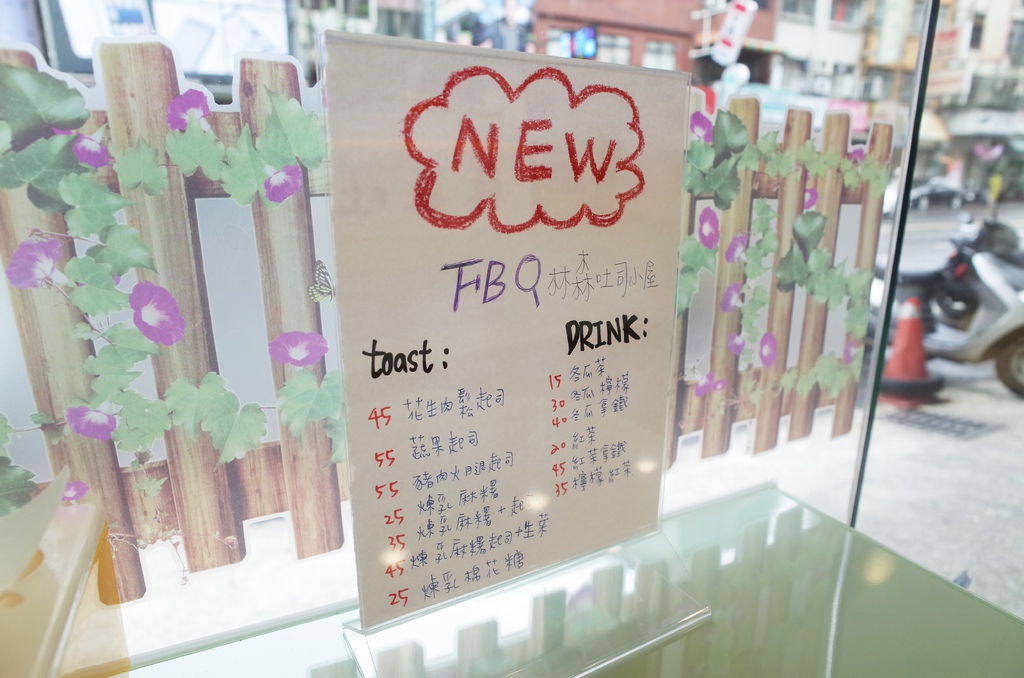 NEW
FBQ 林森吐司小屋
toast:
45 花生肉鬆起司
55 蔬果起司
55 豬肉火腿起司
25 煉乳麻糬
35 煉乳麻糬+起司
45 煉乳麻糬起司+生菜
25 煉乳棉花糖
DRINK:
15 冬瓜茶
30 冬瓜檸檬
40 冬瓜拿鐵
20 紅茶
45 紅茶拿鐵
35 檸檬紅茶